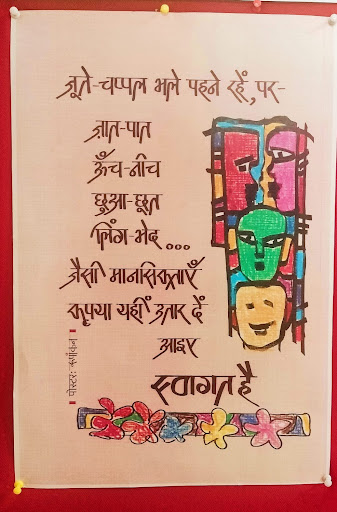 जूते-चप्पल भले पहने रहें, पर-
जात-पात
ऊँच-नीच
छुआ-छूत
लिंग-भेद...
जैसी मानसिकताएँ
कृप्या यहीं उतार दें
आइए
स्वागत है
पोस्टर: